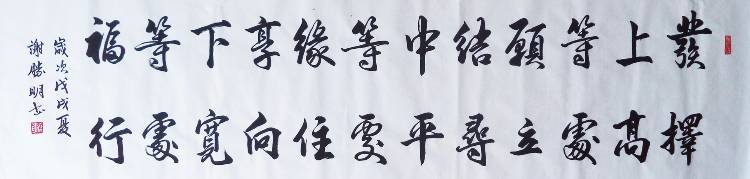 發上等願結中等緣享下等福
擇高處立尋平處住向寬處行
歲次戊戌夏
謝勝明书